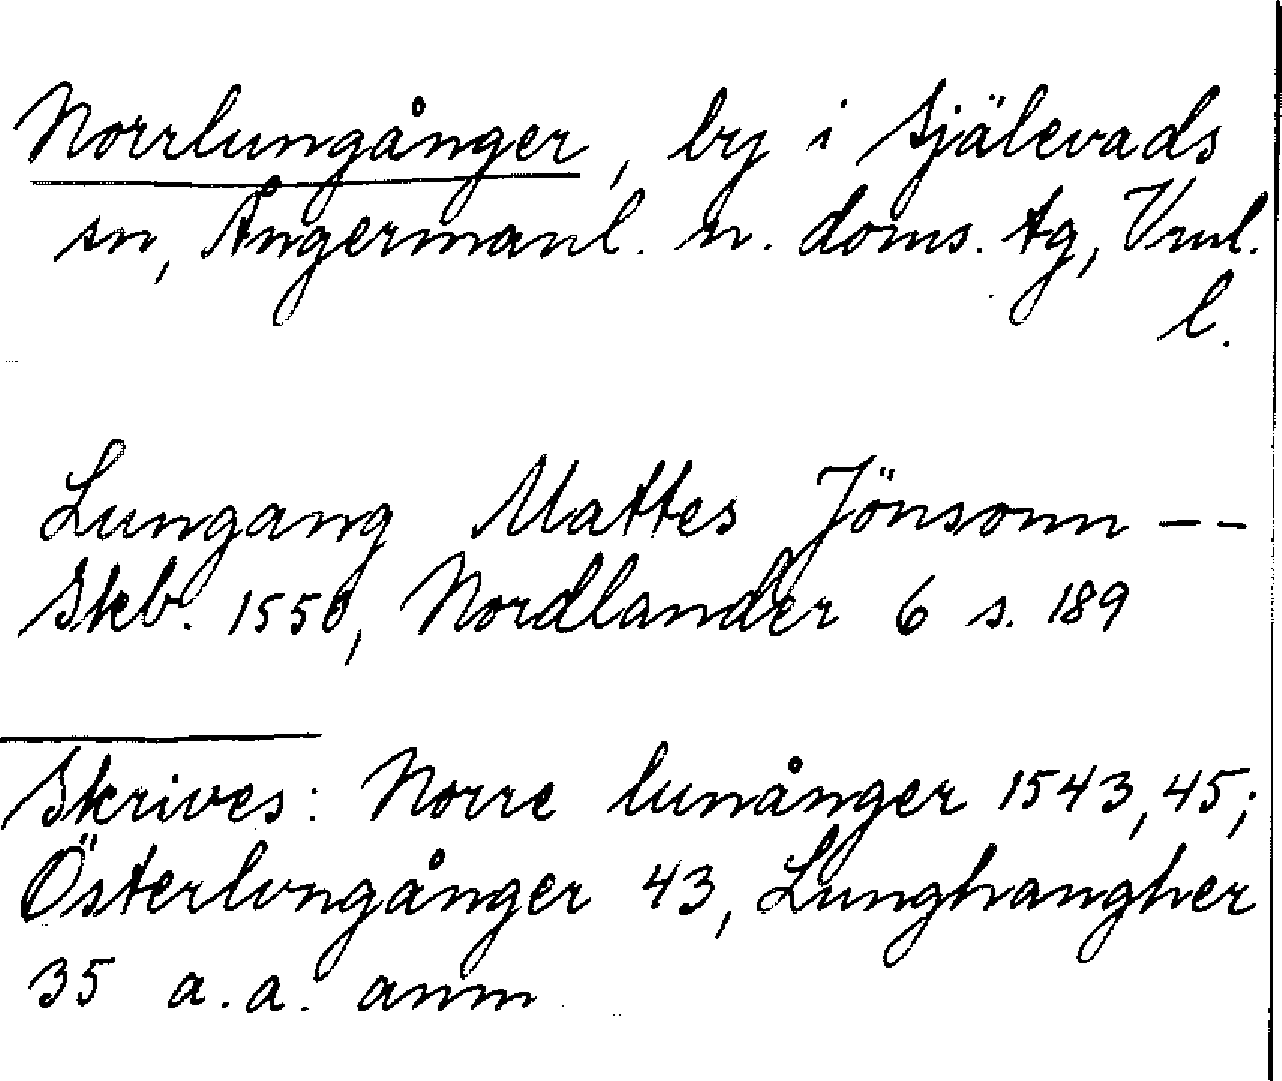 Norrlungånger, by i Själevads
sn, Ångermanl. n. doms. tg, Vnl.
l.
Lungang Mattes Jönsonn --
Skb. 1550, Nordlander 6 s. 189
Skrives: Norre lunånger 1543, 45;
Österlvngånger 43, Lunghangher
35 a.a. anm